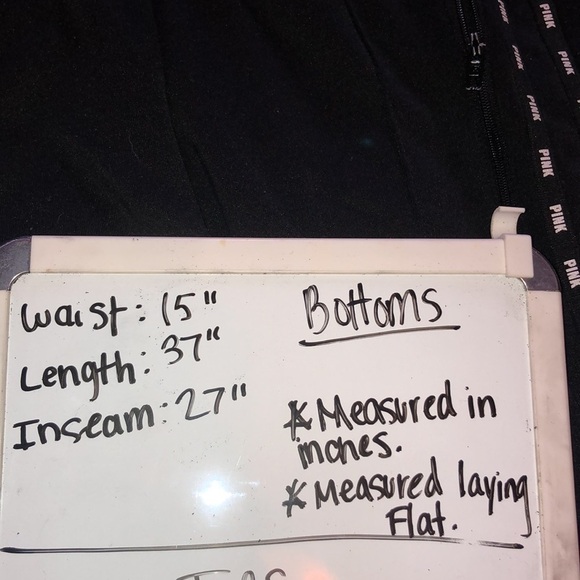 PINK
PINK
PINK
PINK
PINK
PINK
PINK
PINK
PINK
Waist: 15"
Length: 37"
Inseam: 27"
Bottoms
* Measured in
inches.
* Measured laying
Flat.